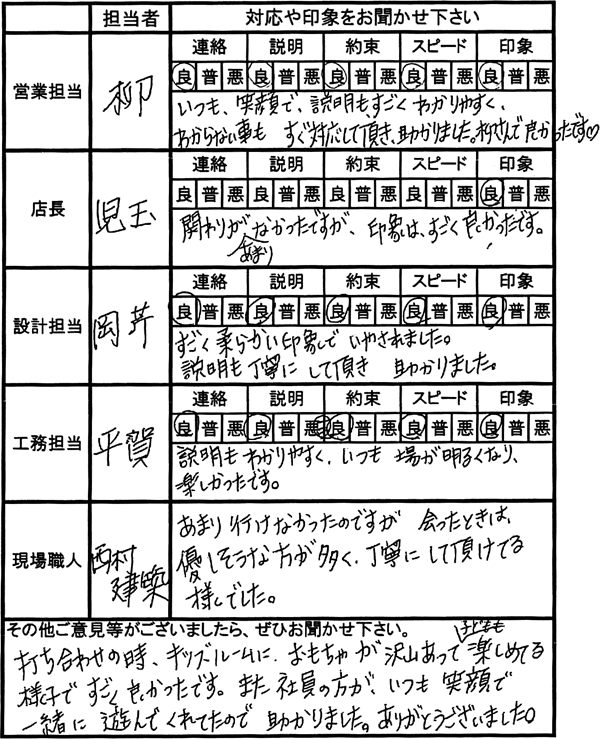 担当者 対応や印象をお聞かせ下さい
営業担当 柳
連絡 説明 約束 スピード 印象
良 普 悪 良 普 悪 良 普 悪 良 普 悪 良 普 悪
いつも、笑顔で、説明もすごくわかりやすく、
わからない事も すぐ対応して頂き、助かりました。柳さんで良かったです♡
店長 児玉
連絡 説明 約束 スピード 印象
良 普 悪 良 普 悪 良 普 悪 良 普 悪 良 普 悪
関わりがあまりなかったですが、印象は、すごく良かったです。
設計担当 岡芹
連絡 説明 約束 スピード 印象
良 普 悪 良 普 悪 良 普 悪 良 普 悪 良 普 悪
すごく柔らかい印象でいやされました。
説明も丁寧にして頂き 助かりました。
工務担当 平賀
連絡 説明 約束 スピード 印象
良 普 悪 良 普 悪 良 普 悪 良 普 悪 良 普 悪
説明もわかりやすく、いつも 場が明るくなり、
楽しかったです。
現場職人 西村建築
あまり行けなかったのですが 会ったときは、
優しそうな方が多く、丁寧にして頂けてる
様しでした。
その他ご意見等がございましたら、ぜひお聞かせ下さい。
打ち合わせの時、キッズルームに、おもちゃが沢山あって子どもも楽しめてる
様子で すごく良かったです。また社員の方が、いつも 笑顔で
一緒に 遊んでくれてたので 助かりました。ありがとうございました。